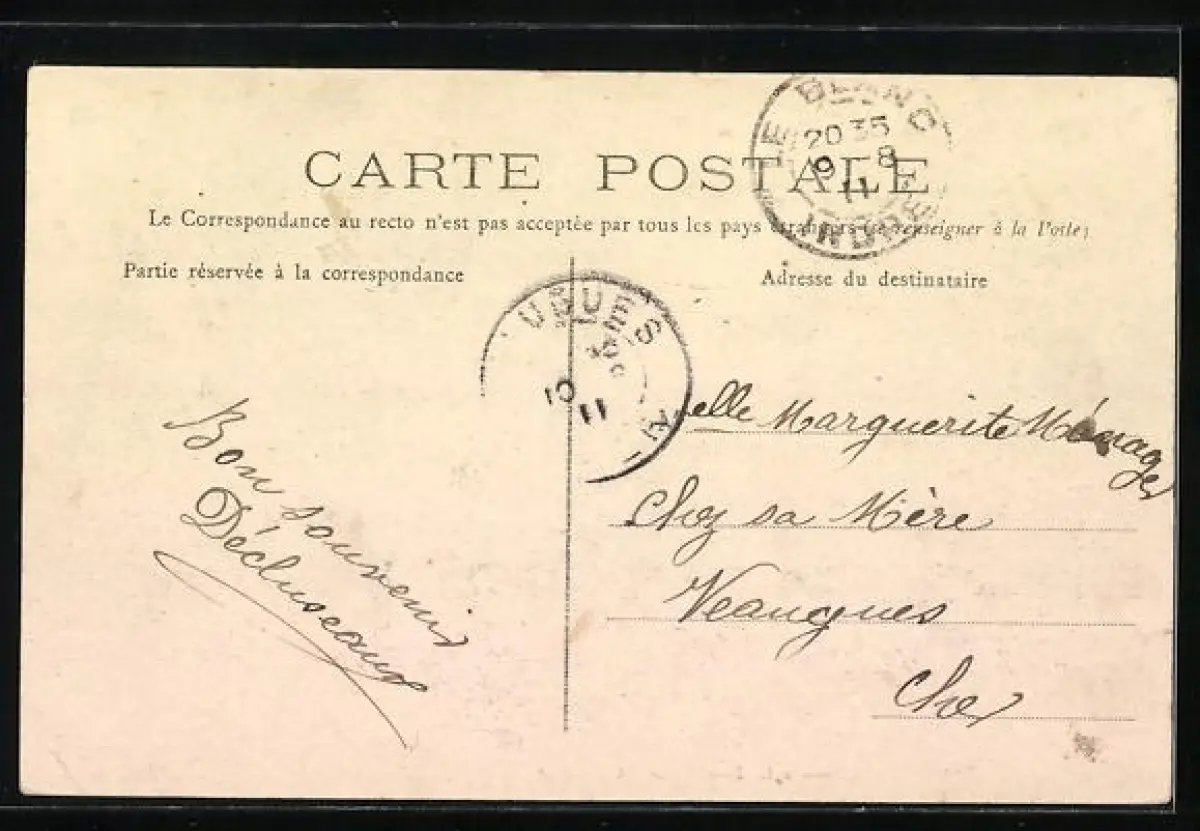 LE BLANC
20 35
9 8
11
INDRE
CARTE POSTALE
Le Correspondance au recto n'est pas acceptée par tous les pays étrangers (se renseigner à la Poste)
Partie réservée à la correspondance
Adresse du destinataire
UGUES
11
Bon souvenir
Décluseaux
elle Marguerite Ménager
Chez sa Mère
Veaugues
Cher